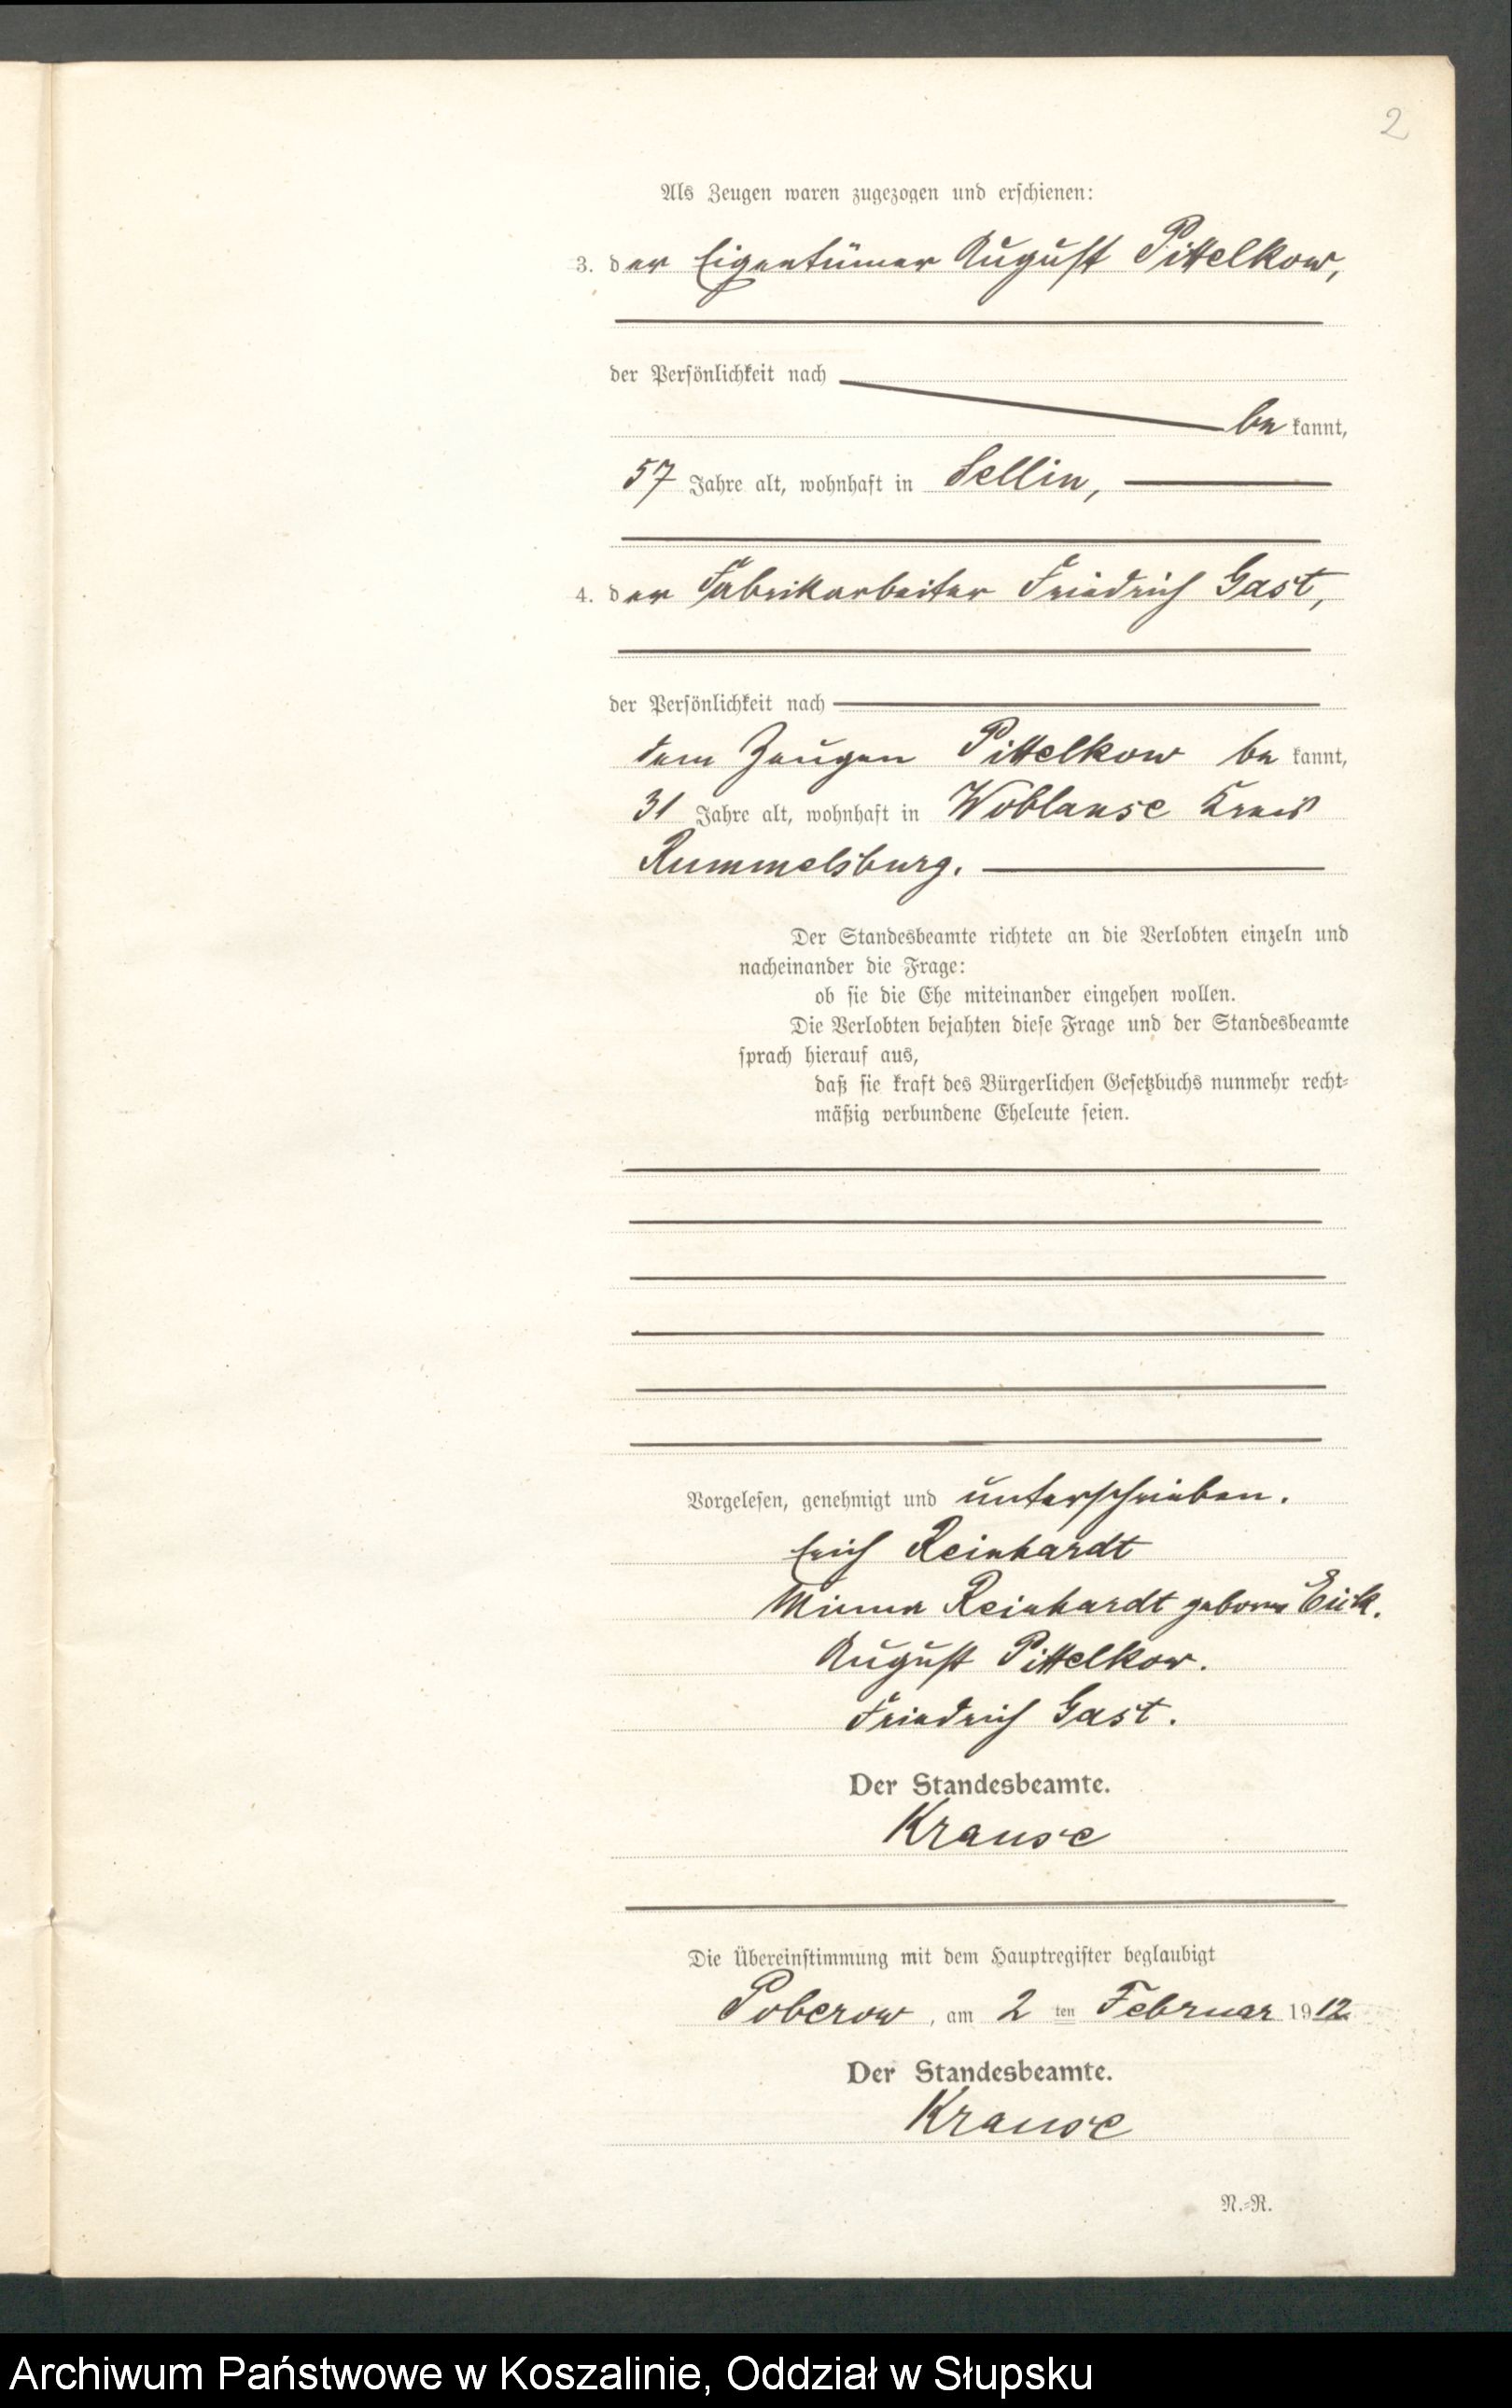 2
Als Zeugen waren zugezogen und erschienen:
3. der Eigentümer August Pittelkow,
der Persönlichkeit nach
be kannt,
57 Jahre alt, wohnhaft in Sellin,
4. der Fabrikarbeiter Friedrich Gast,
der Persönlichkeit nach
dem Zeugen Pittelkow be kannt,
31 Jahre alt, wohnhaft in Woblanse Kreis
Rummelsburg.
Der Standesbeamte richtete an die Verlobten einzeln und
nacheinander die Frage:
ob sie die Ehe miteinander eingehen wollen.
Die Verlobten bejahten diese Frage und der Standesbeamte
sprach hierauf aus,
daß sie kraft des Bürgerlichen Gesetzbuchs nunmehr recht-
mäßig verbundene Eheleute seien.
Vorgelesen, genehmigt und unterschrieben.
Erich Reinhardt
Minna Reinhardt geborne Eick.
August Pittelkow.
Friedrich Gast.
Der Standesbeamte.
Krause
Die Übereinstimmung mit dem Hauptregister beglaubigt
Poberow, am 2 ten Februar 1912
Der Standesbeamte.
Krause
N.-R.
Archiwum Państwowe w Koszalinie, Oddział w Słupsku